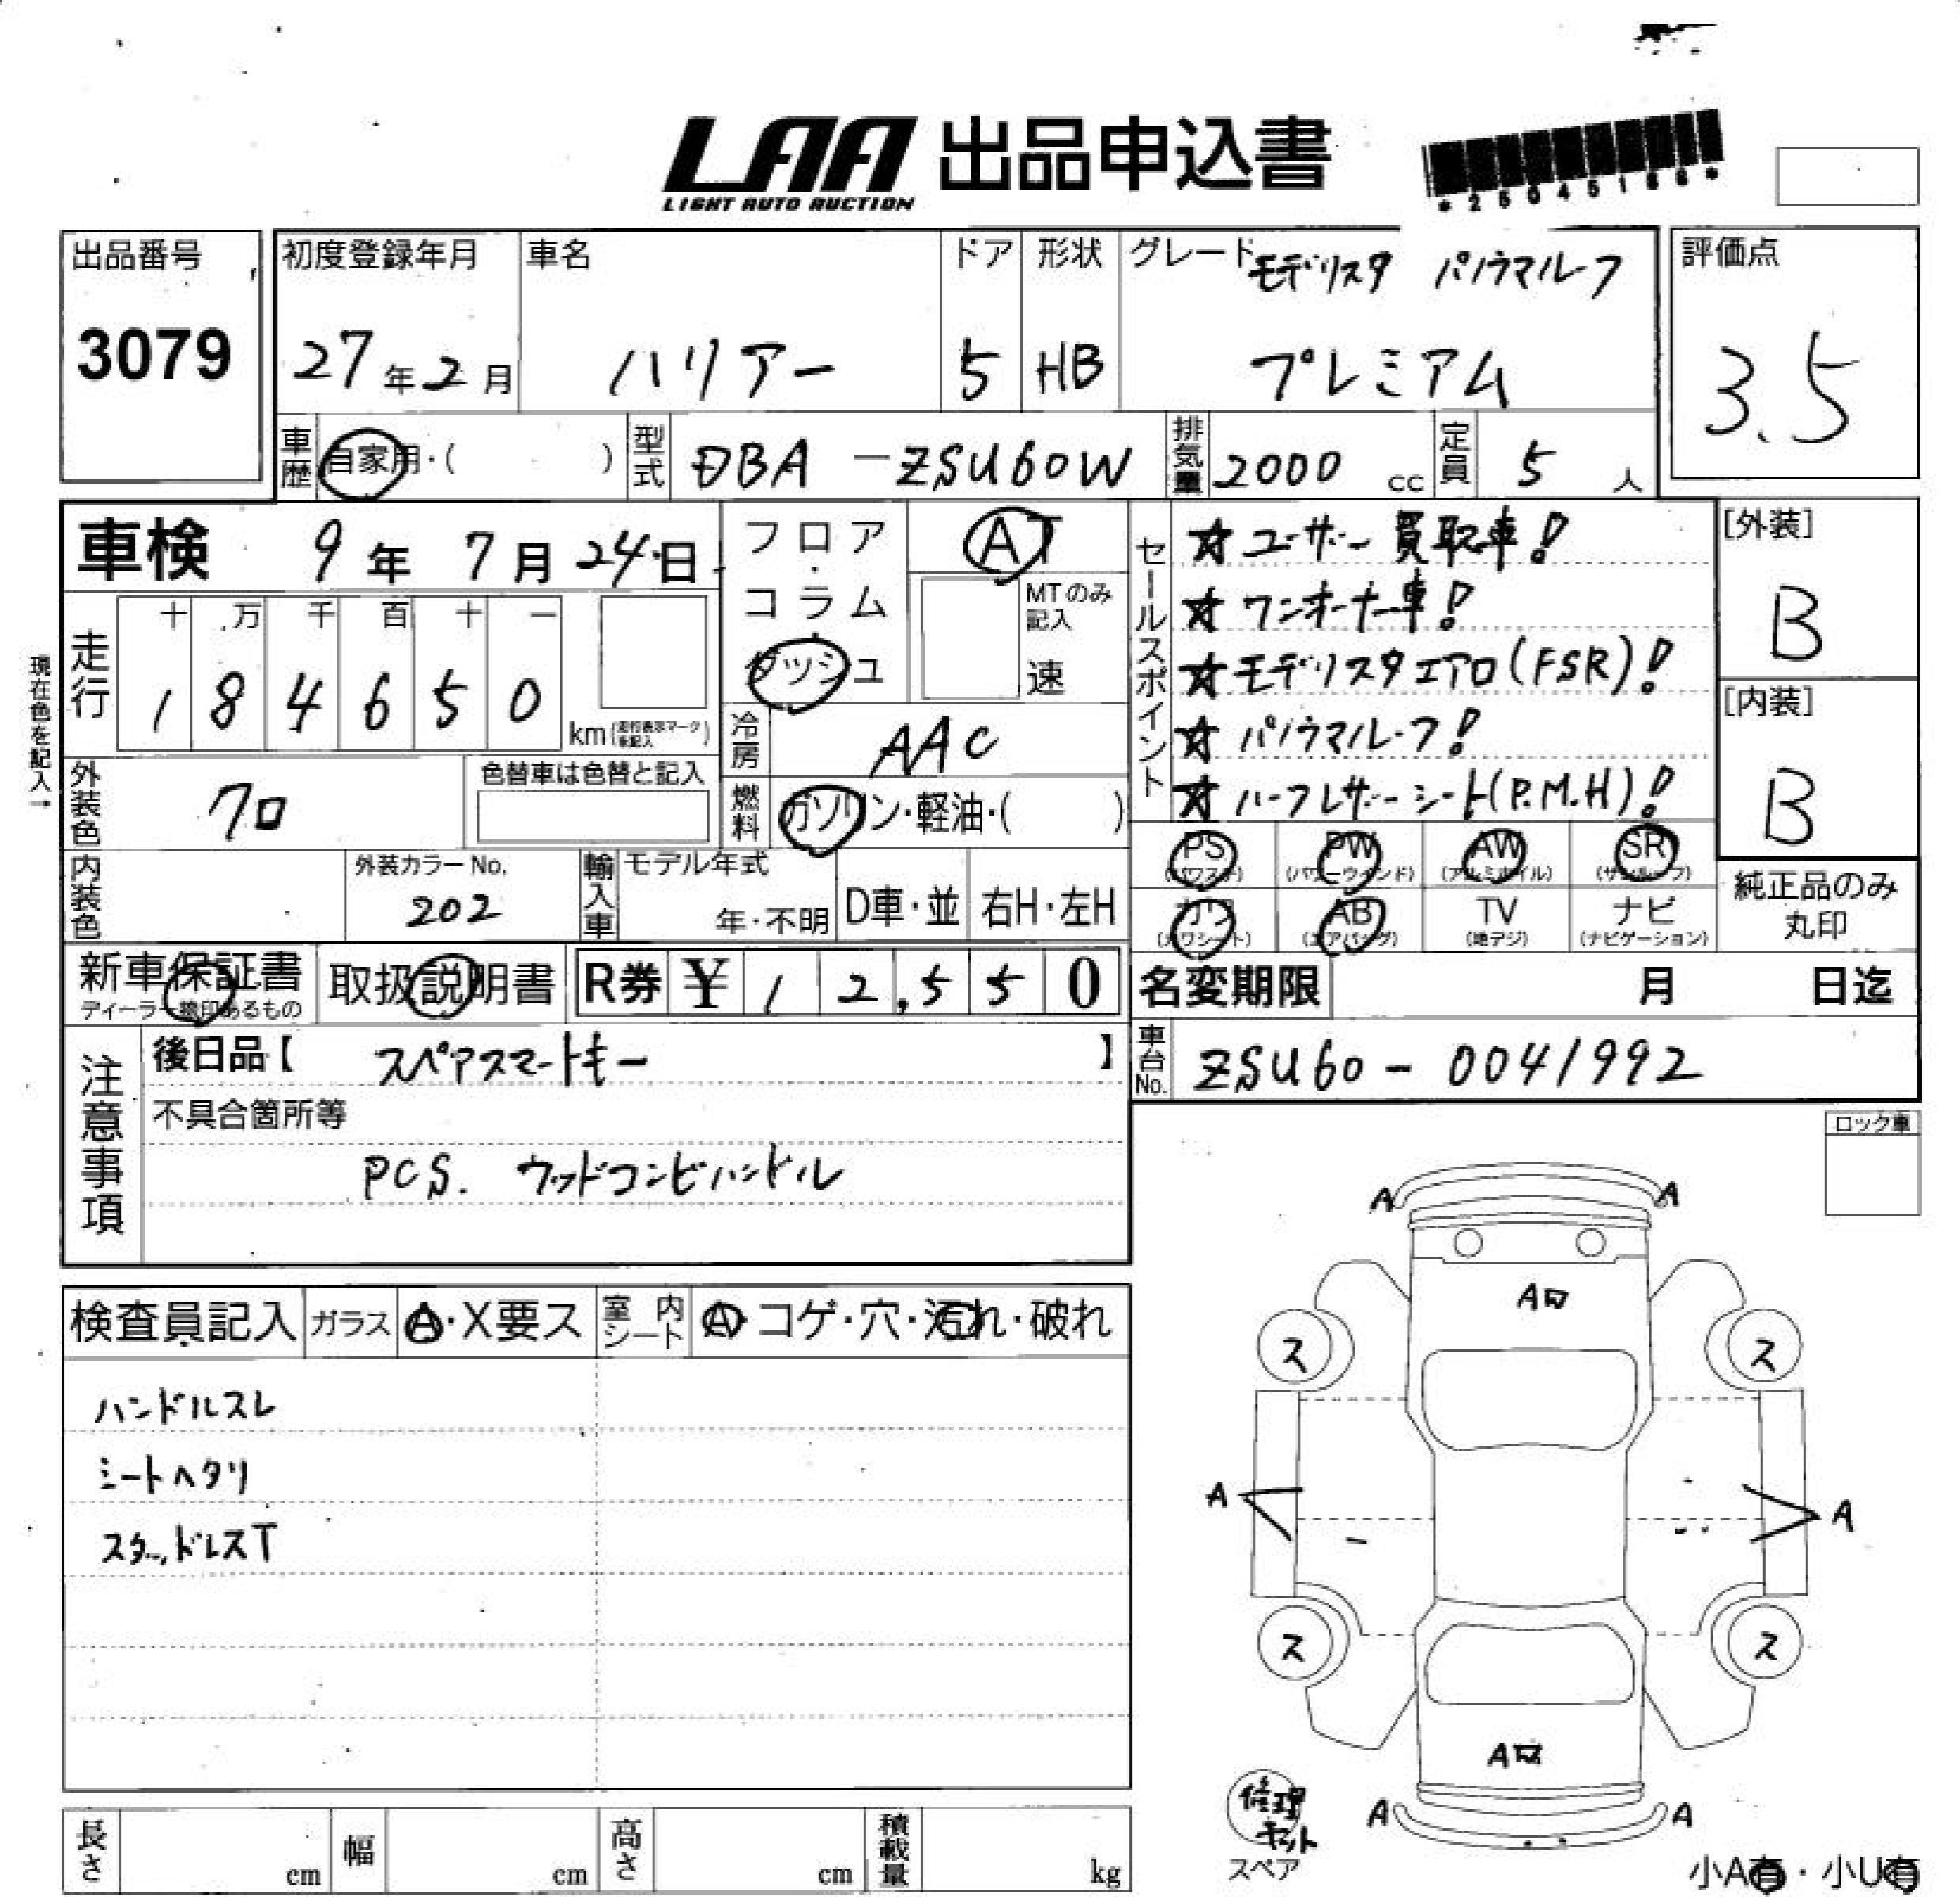 LAA 出品申込書
LIGHT AUTO AUCTION
出品番号
3079
初度登録年月
27年2月
車名
ハリアー
ドア
5
形状
HB
グレード モデリスタ パノラマルーフ
プレミアム
評価点
3.5
車歴 自家用・( )
型式 DBA-ZSU60W
排気量 2000 cc
定員 5 人
車検 9年7月24日
フロア・コラム・ダッシュ
AT
MTのみ記入
速
走行
十 万 千 百 十 一
1 8 4 6 5 0 km
現在色を記入→
冷房 AAC
外装色 クロ
色替車は色替と記入
燃料 ガソリン・軽油・( )
内装色
外装カラーNo.
202
輸入車
モデル年式
年・不明
D車・並
右H・左H
セールスポイント
☆ユーザー買取車!
☆ワンオーナー車!
☆モデリスタエアロ(FSR)!
☆パノラマルーフ!
☆ハーフレザーシート(P.M.H)!
[外装]
B
[内装]
B
PS PW AW SR
(パワステ) (パワーウインド) (アルミホイル) (サンルーフ)
カワ AB TV ナビ
(カワシート) (エアバッグ) (地デジ) (ナビゲーション)
純正品のみ
丸印
新車保証書
ディーラー捺印あるもの
取扱説明書
R券 ¥12,550
名変期限 月 日迄
車台No. ZSU60-0041992
注意事項
後日品【 スペアスマートキー 】
不具合箇所等
PCS. ウッドコンビハンドル
ロック車
検査員記入 ガラス A・X要ス 室内シート A・コゲ・穴・汚れ・破れ
ハンドルスレ
シートヘタリ
スタッドレスT
A A
A
ス ス
A A
ス ス
A
A A
修理
キット
スペア
小A有・小U有
長さ cm 幅 cm 高さ cm 積載量 kg